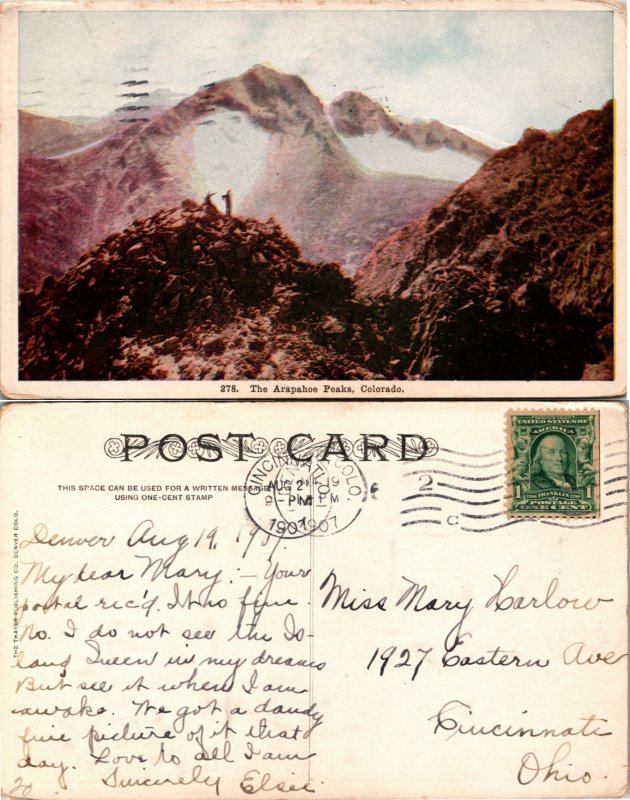 278. The Arapahoe Peaks, Colorado.
POST CARD
THIS SPACE CAN BE USED FOR A WRITTEN MESSAGE
USING ONE-CENT STAMP
THE THAYER PUBLISHING CO. DENVER COLO.
CINCINNATI COLO.
AUG 21 19
PM PM
1907 1907
2
C
SERIES 1902
UNITED STATES OF AMERICA
1 FRANKLIN 1
POSTAGE
ONE CENT
Denver Aug 19, 1907.
My dear Mary:- Your
postal rec'd. It is fine.
No. I do not see the Is-
land Queen in my dreams
But see it when I am
awake. We got a dandy
fine picture of it that
day. Love to all I am
Sincerely Elsie.
20
Miss Mary Harlow
1927 Eastern Ave
Cincinnati
Ohio.